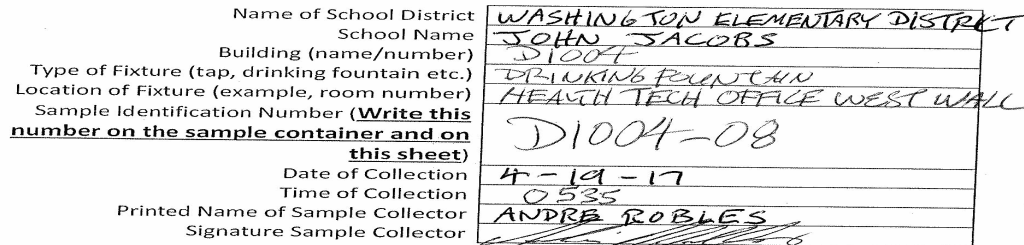 Name of School District WASHINGTON ELEMENTARY DISTRCT
School Name JOHN JACOBS
Building (name/number) D1004
Type of Fixture (tap, drinking fountain etc.) DRINKING FOUNTAIN
Location of Fixture (example, room number) HEALTH TECH OFFICE WEST WALL
Sample Identification Number (Write this
number on the sample container and on D1004-08
this sheet)
Date of Collection 4-19-17
Time of Collection 0535
Printed Name of Sample Collector ANDRE ROBLES
Signature Sample Collector